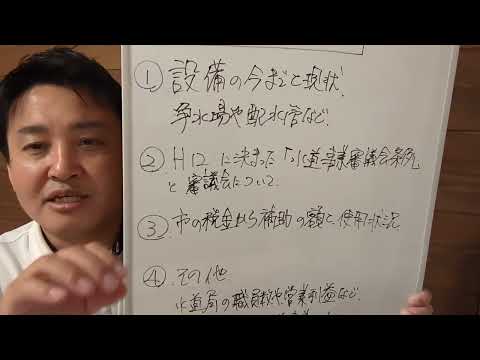 ① 設備の今までと現状、
浄水場や配水管など、
② H12に決まった「水道事業審議会条例
と審議会について、
③ 市の税金から補助の額と、使用状況
④ その他
水道局の職員数や営業利益など、